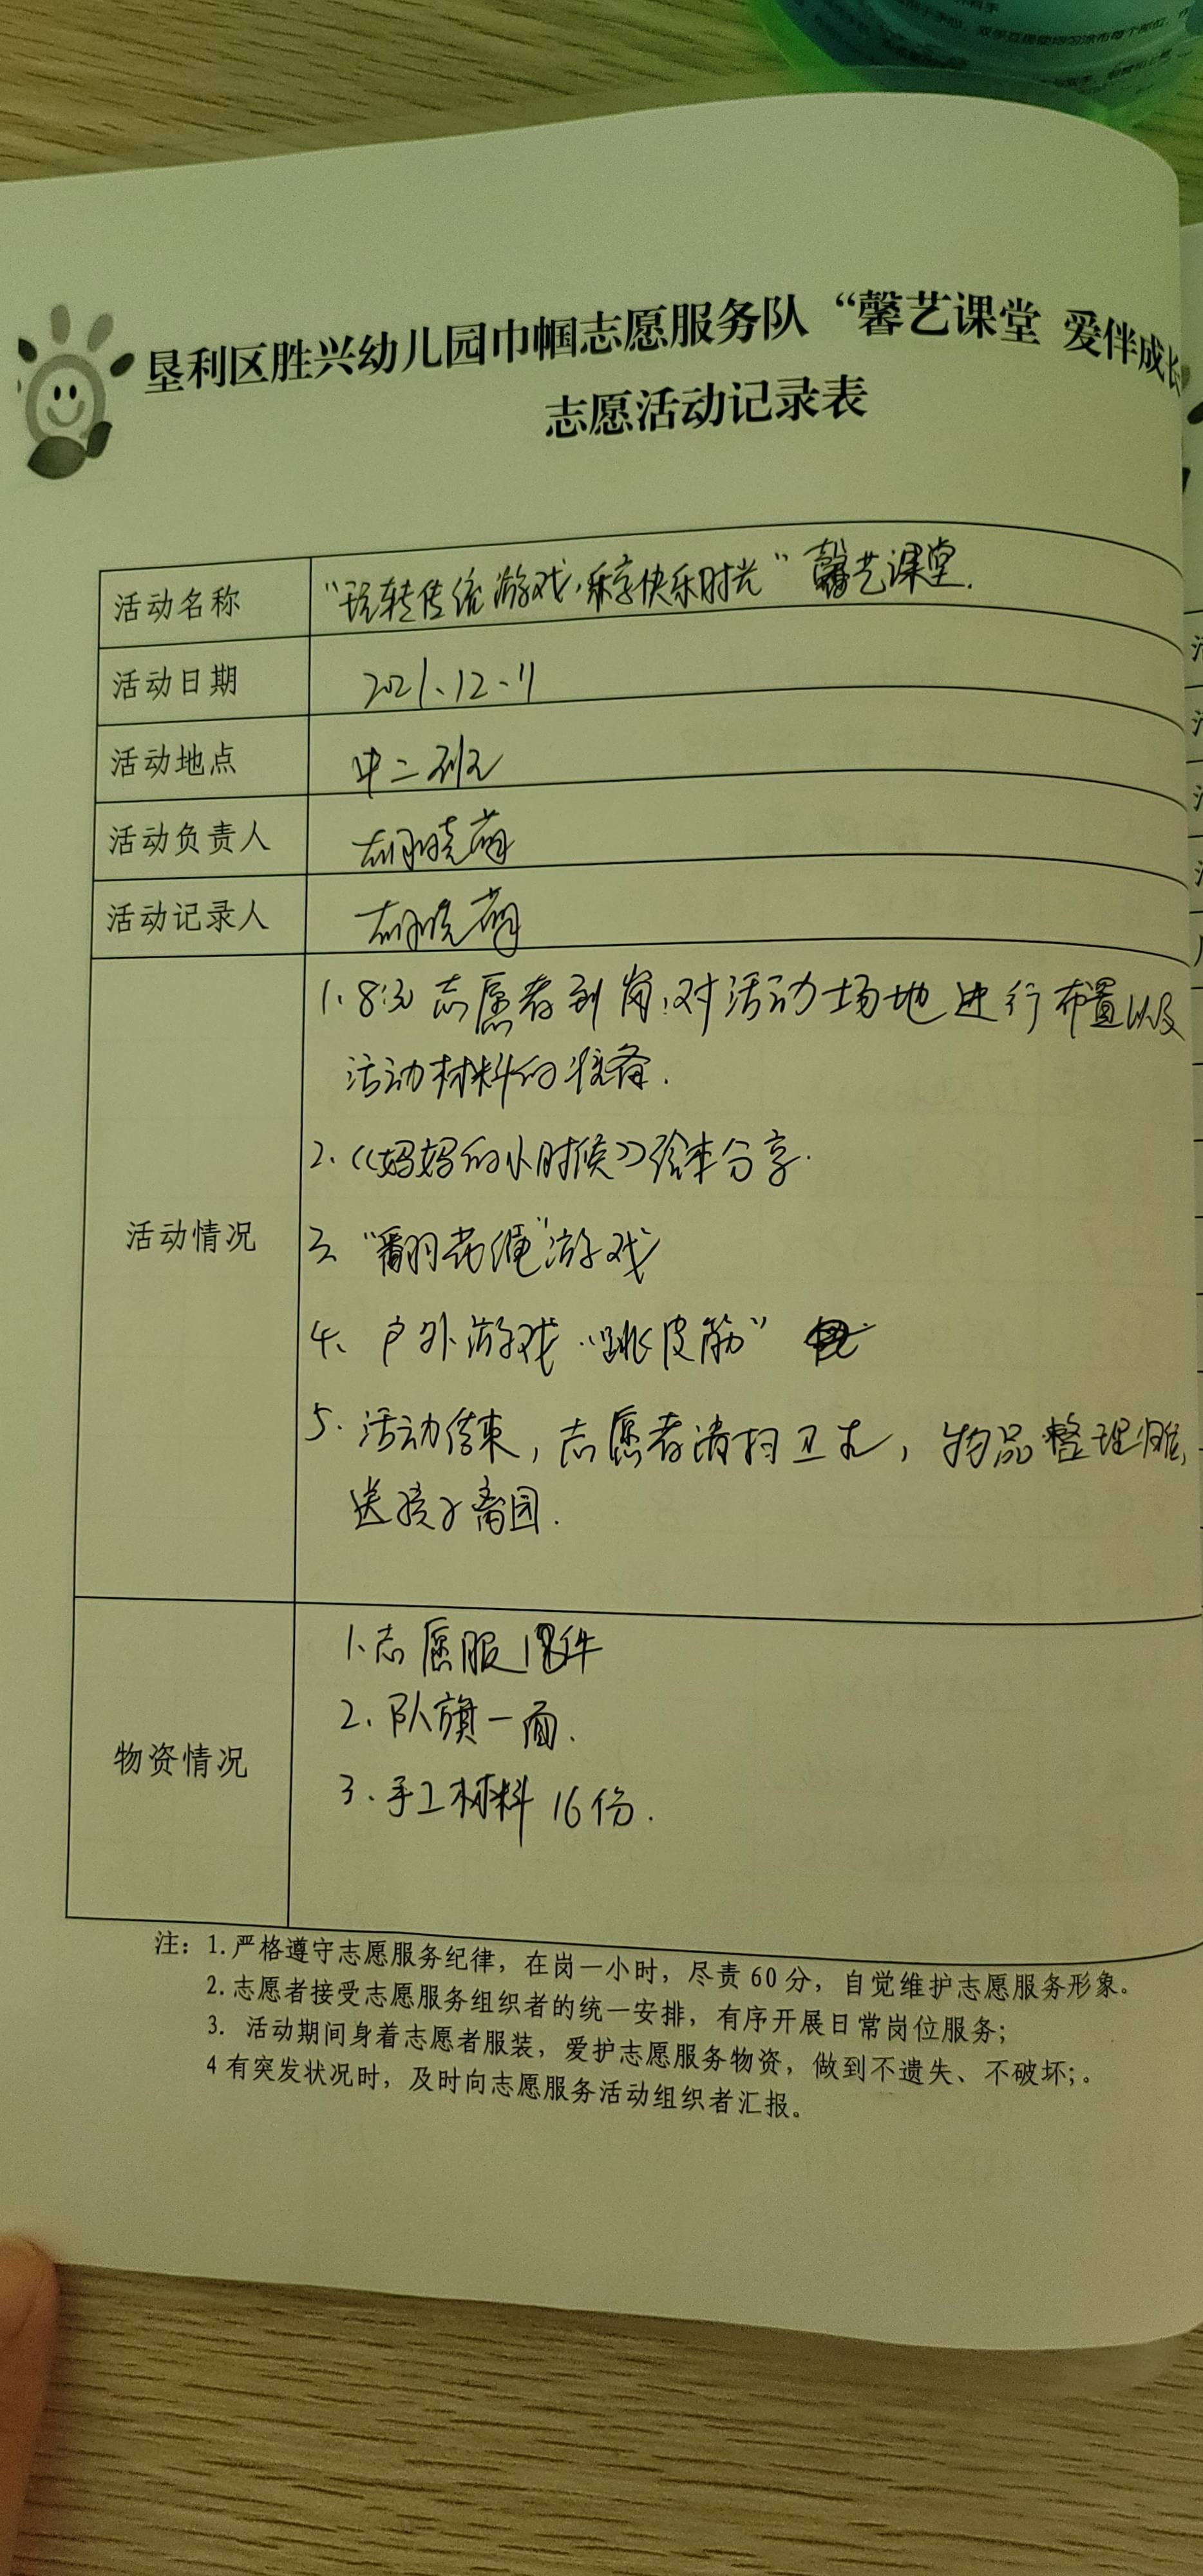 垦利区胜兴幼儿园巾帼志愿服务队“馨艺课堂 爱伴成长
志愿活动记录表
活动名称 “玩转传统游戏，乐享快乐时光”馨艺课堂.
活动日期 2021.12.11
活动地点 中二班
活动负责人 胡晓萌
活动记录人 胡晓萌
活动情况
1.8:30志愿者到岗，对活动场地进行布置以及
活动材料的准备.
2.《妈妈的小时候》绘本分享.
3、“翻花绳”游戏
4、户外游戏“跳皮筋”
5.活动结束，志愿者清扫卫生，物品整理归位，
送孩子离园.
物资情况
1.志愿服18件
2.队旗一面.
3.手工材料16份.
注：1.严格遵守志愿服务纪律，在岗一小时，尽责60分，自觉维护志愿服务形象。
2.志愿者接受志愿服务组织者的统一安排，有序开展日常岗位服务；
3. 活动期间身着志愿者服装，爱护志愿服务物资，做到不遗失、不破坏；。
4有突发状况时，及时向志愿服务活动组织者汇报。